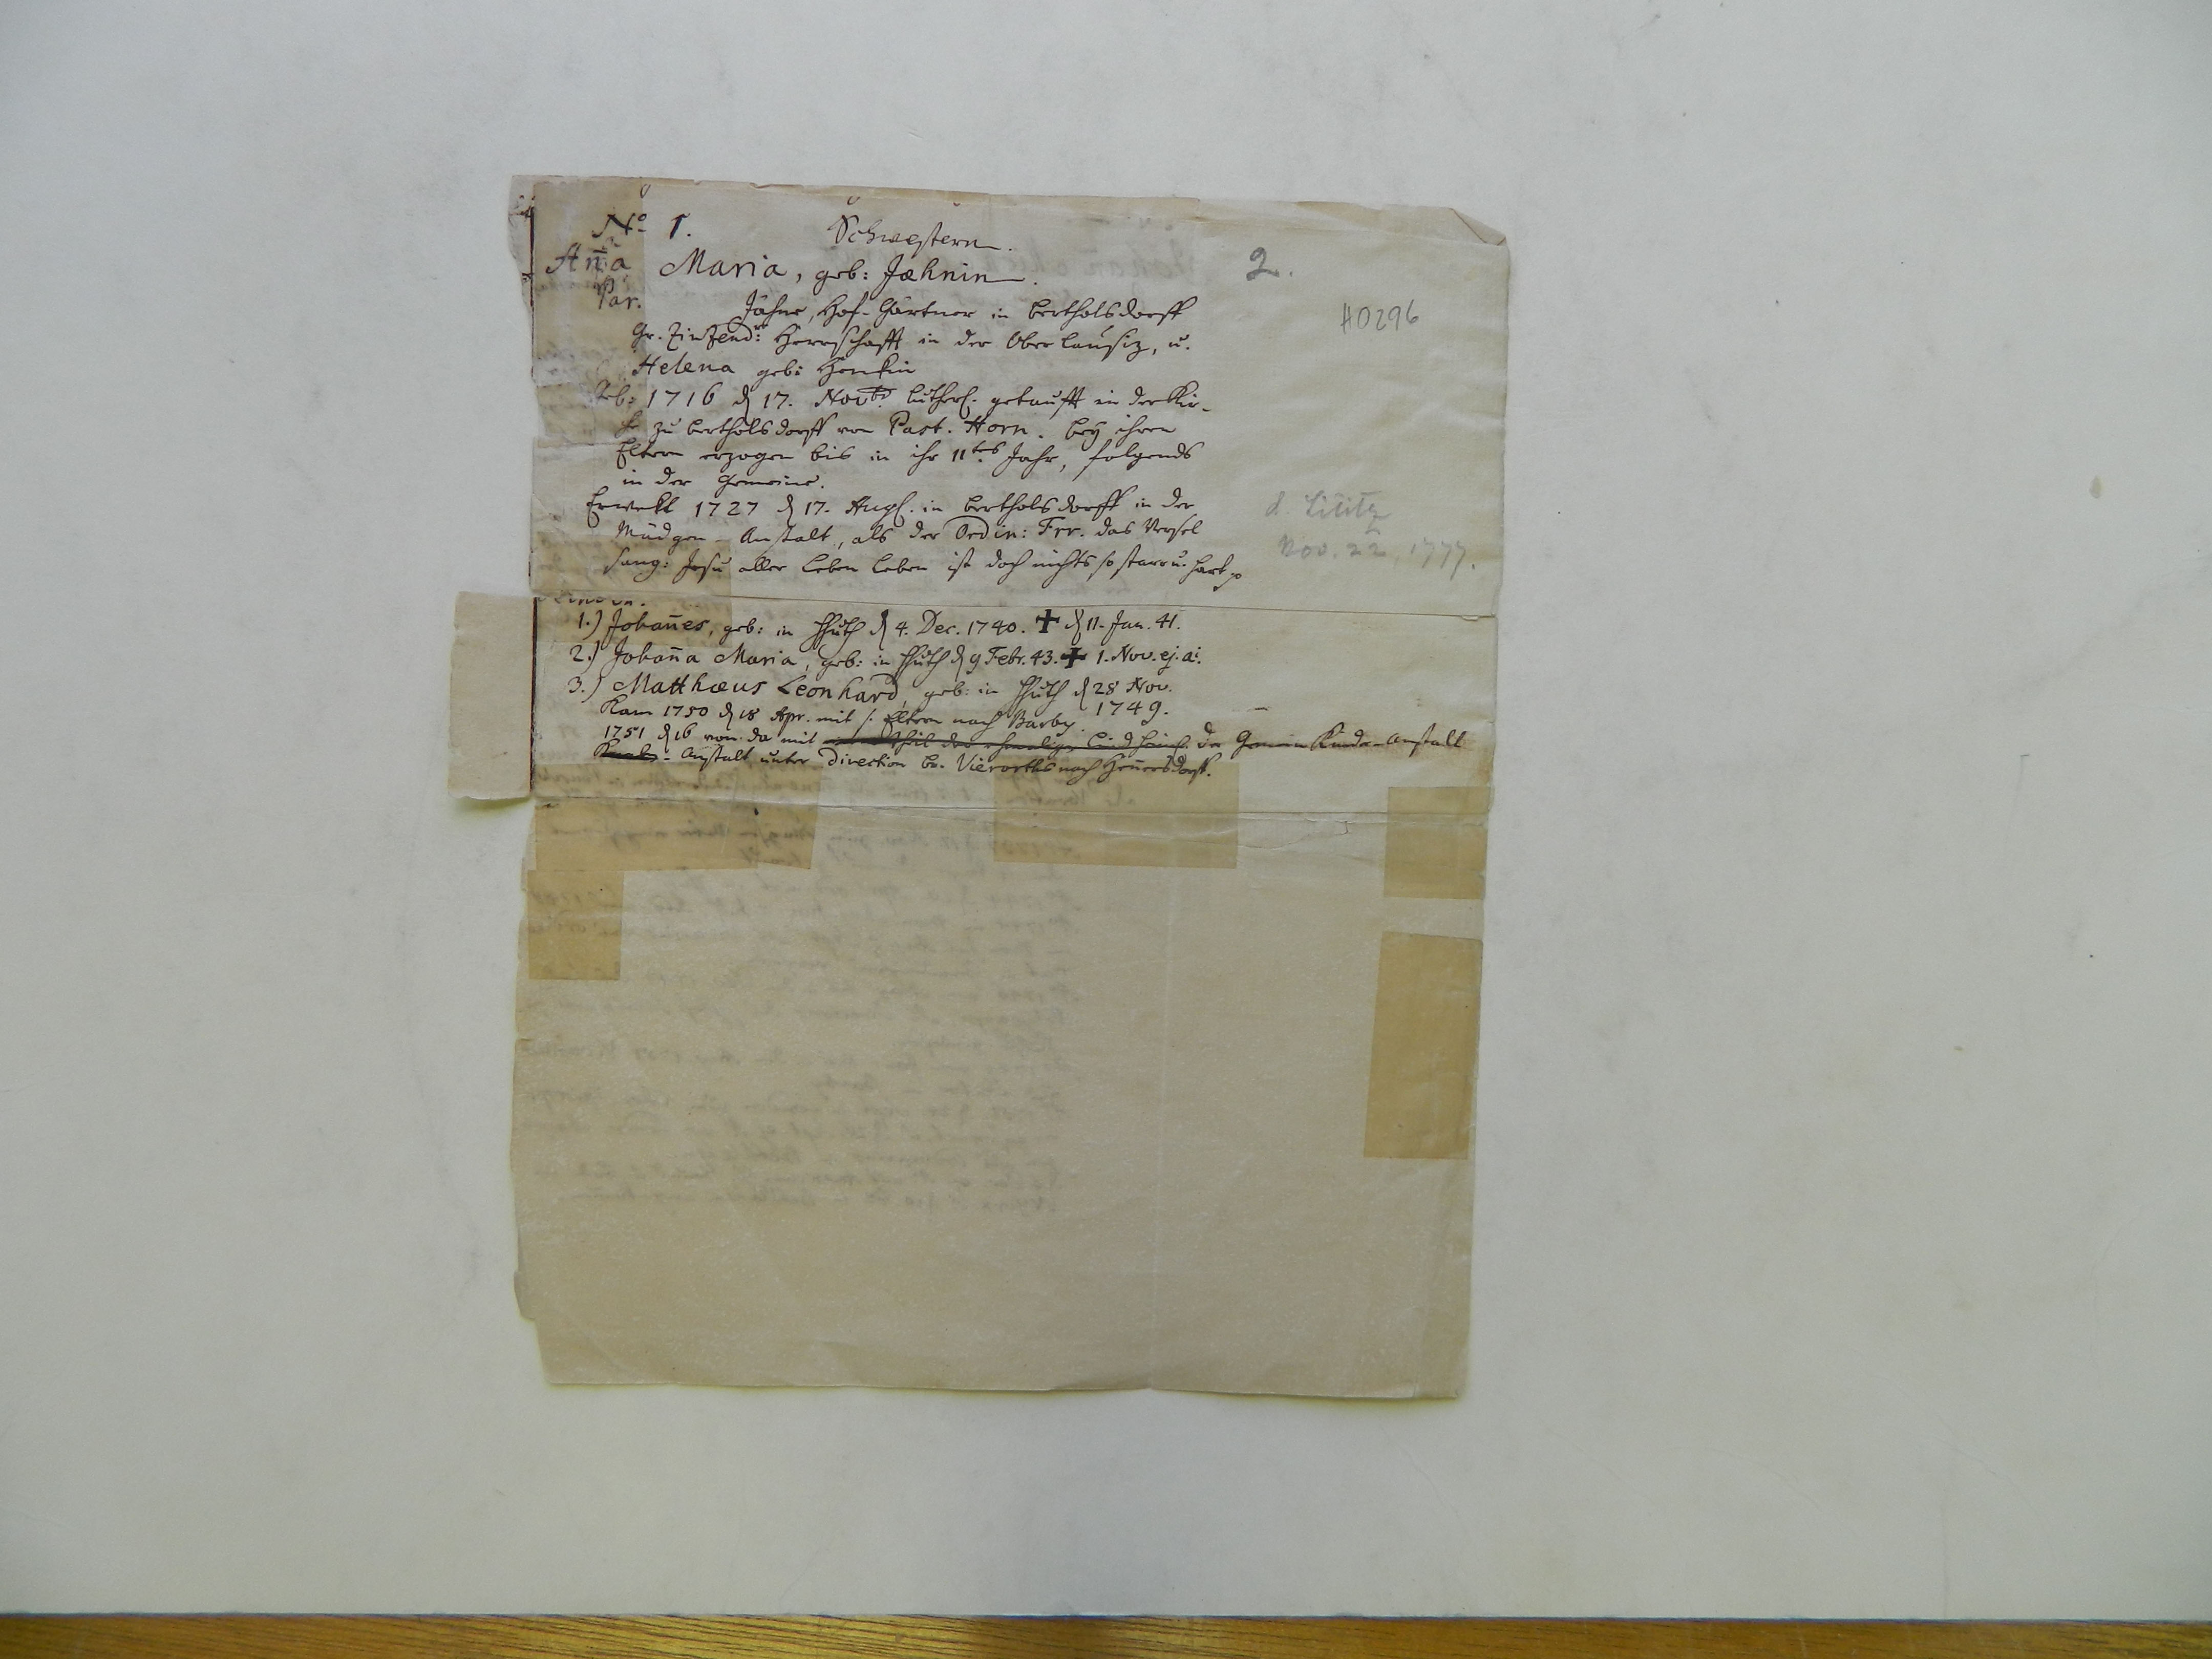 No. 1.
Schwestern.
Ana̅ Maria, geb: Jæhnin.
2.
Par. Jähne, Hof-Gärtner in Bertholsdorff
H0296
Gr. Zinzend: Herrschafft in der Ober Lausiz, u.
Helena geb:
Geb: 1716 d 17. Novbr. Luther. getaufft in der Kir-
che zu Bertholsdorff von Past. Horn. bey ihren
Eltern erzogen bis in ihr 11tes Jahr, folgends
in der Gemeine.
Erwekt 1727 d 17. Aug. in Bertholsdorff in der
d. Lititz
Mädgen-Anstalt, als der Ordin: Frr. das Versel
Nov. 22, 1777.
sang: Jesu aller Leben Leben ist doch nichts so starr u. hart
Kinder.
1.) Johan̅es, geb: in HHuth d 4. Dec. 1740. ✝ d 11. Jan. 41.
2.) Johan̅a Maria, geb: in HHuth d 9 Febr. 43. ✝ 1. Nov. ej. a:.
3.) Matthæus Leonhard, geb: in HHuth d 28 Nov.
1749.
Kam 1750 d 18 Apr. mit s: Eltern nach Barby.
1751 d 16 von da mit der Gemein Kinder-Anstalt
Anstalt unter Direction Br. Vieroths nach Hen̅ersdorff.